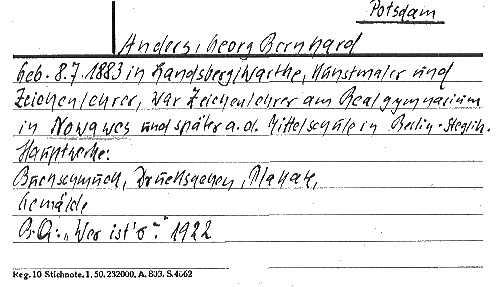 Potsdam
Anders, Georg Bernhard
Geb. 8.7.1883 in Landsberg/Warthe, Kunstmaler und
Zeichenlehrer, war Zeichenlehrer am Realgymnasium
in Nowawes und später a.d. Mittelschule in Berlin-Steglitz.
Hauptwerke:
Buchschmuck, Drucksachen, Plakate,
Gemälde
B.Q.: „Wer ist's?" 1922
Reg. 10 Stichnote. I. 50. 232000. A. 803. S. 4662